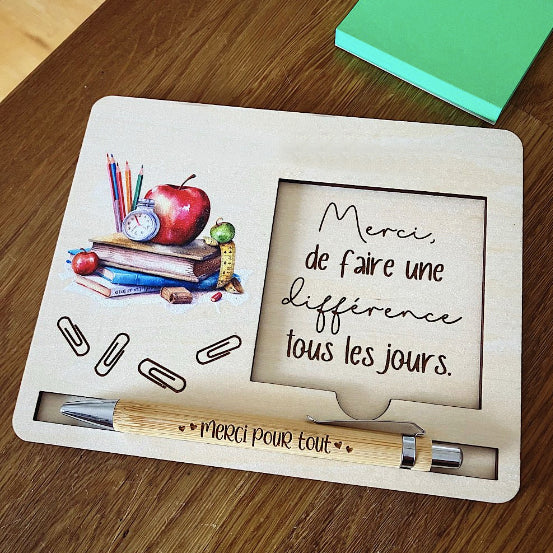 Merci,
de faire une
différence
tous les jours.
Merci pour tout